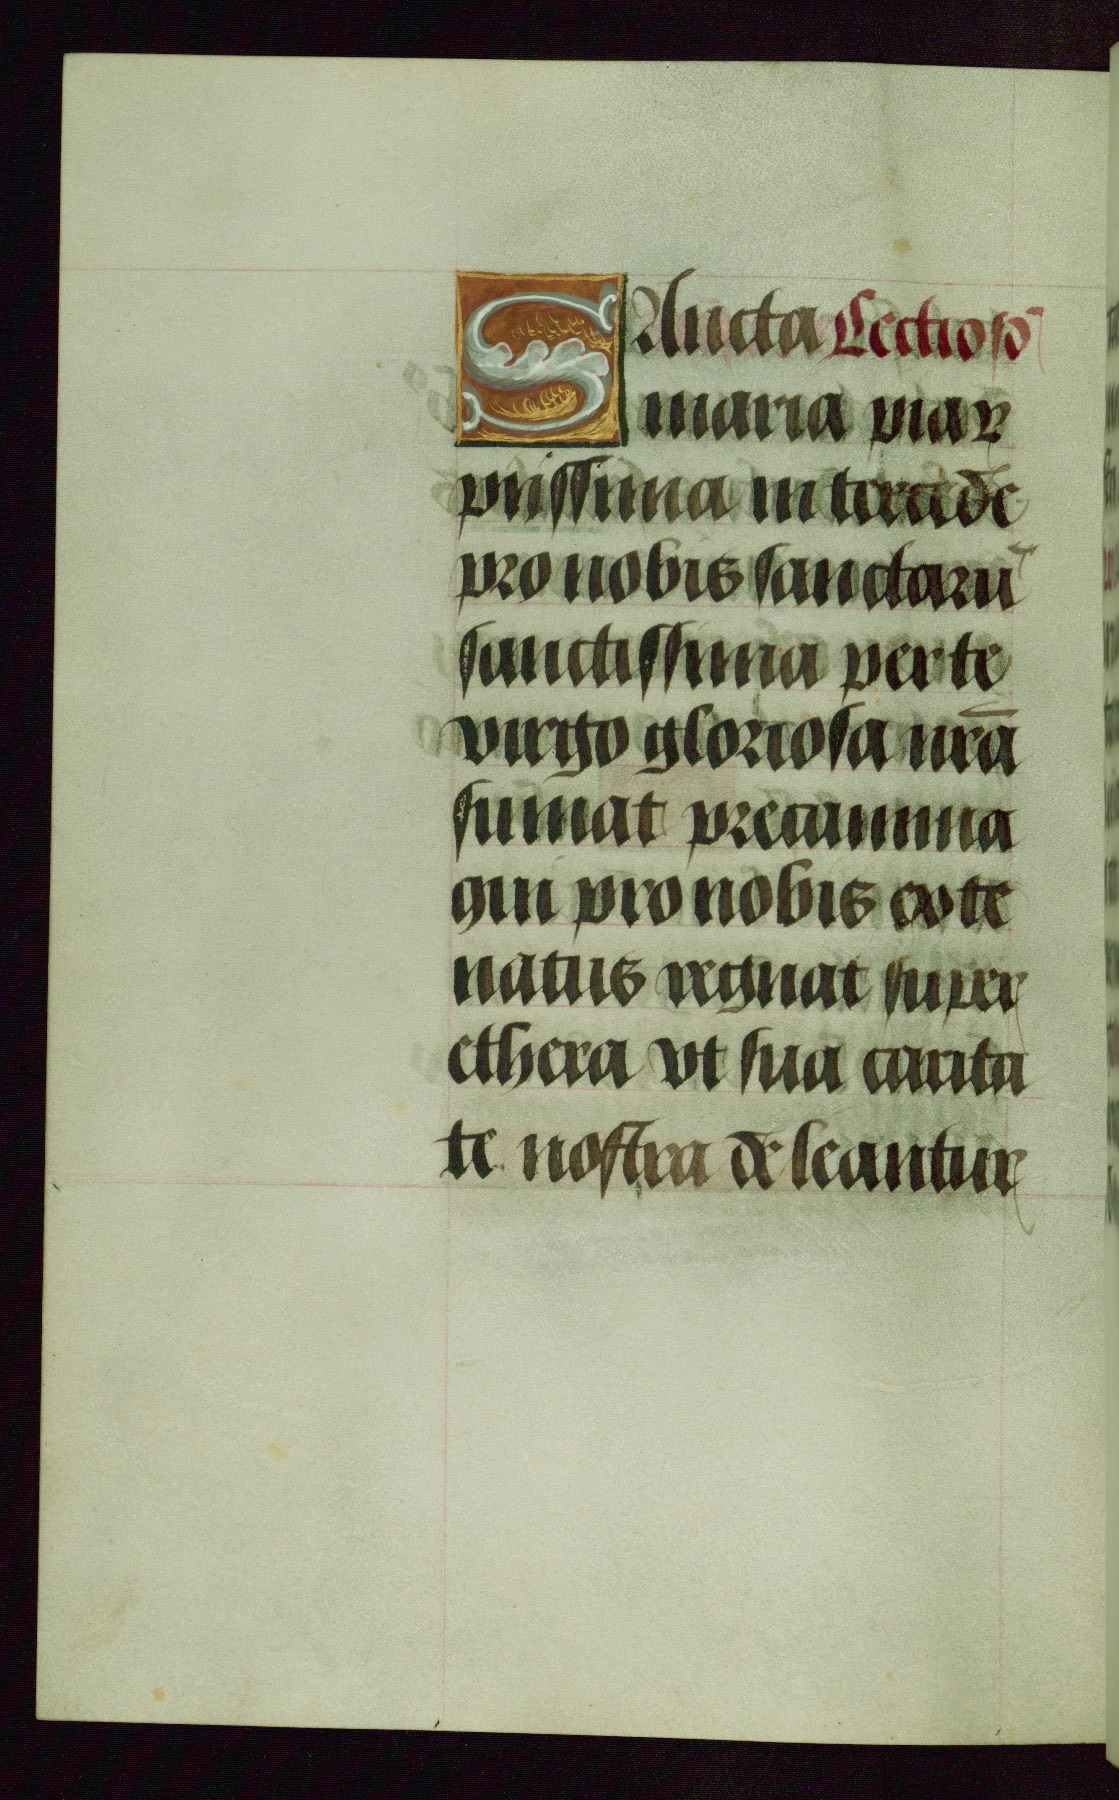 SAncta Lectio sõ
maria piaꝝ
piissima intercede
pro nobis sanctarū
sanctissima per te
virgo gloriosa nr̄a
sumat precamina
qui pro nobis ex te
natus regnat super
ethera vt sua carita
te nostra deleantur